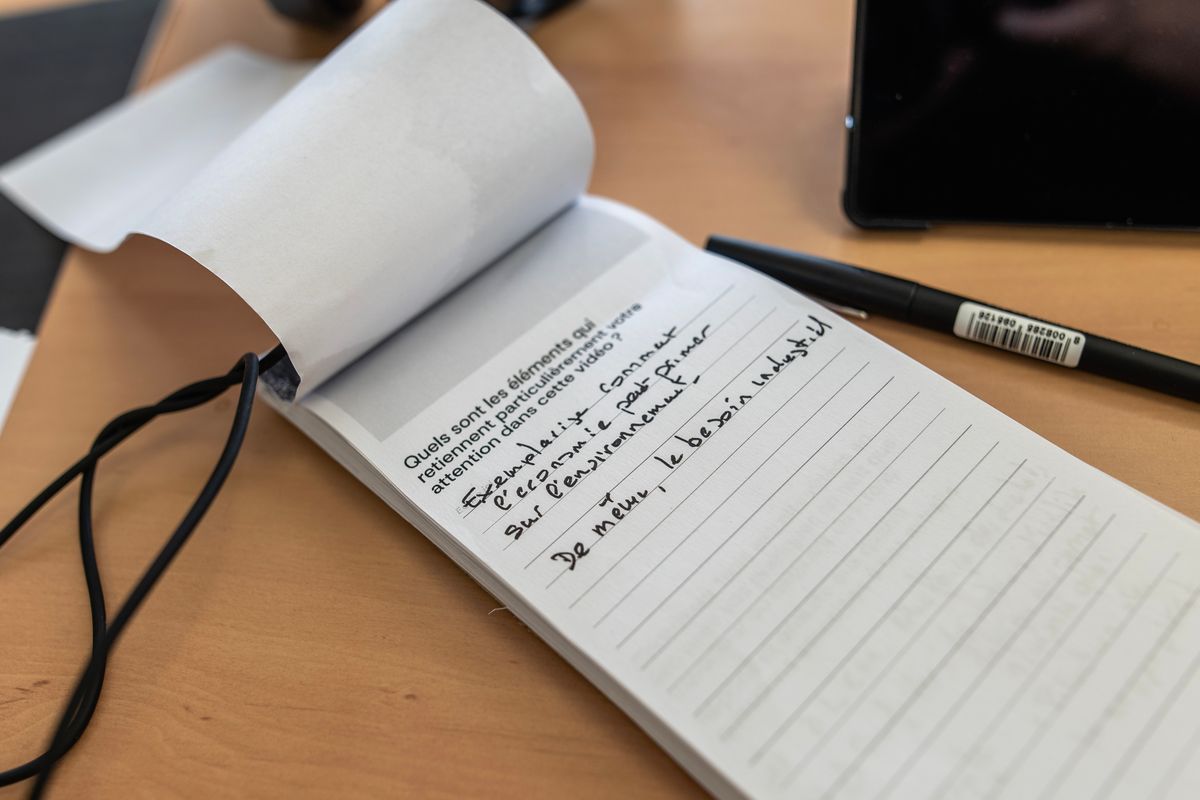 Quels sont les éléments qui
retiennent particulièrement votre
attention dans cette vidéo ?
Exemplarise comment
l'économie peut primer
sur l'environnement.
De même, le besoin industriel
8 008285 095126